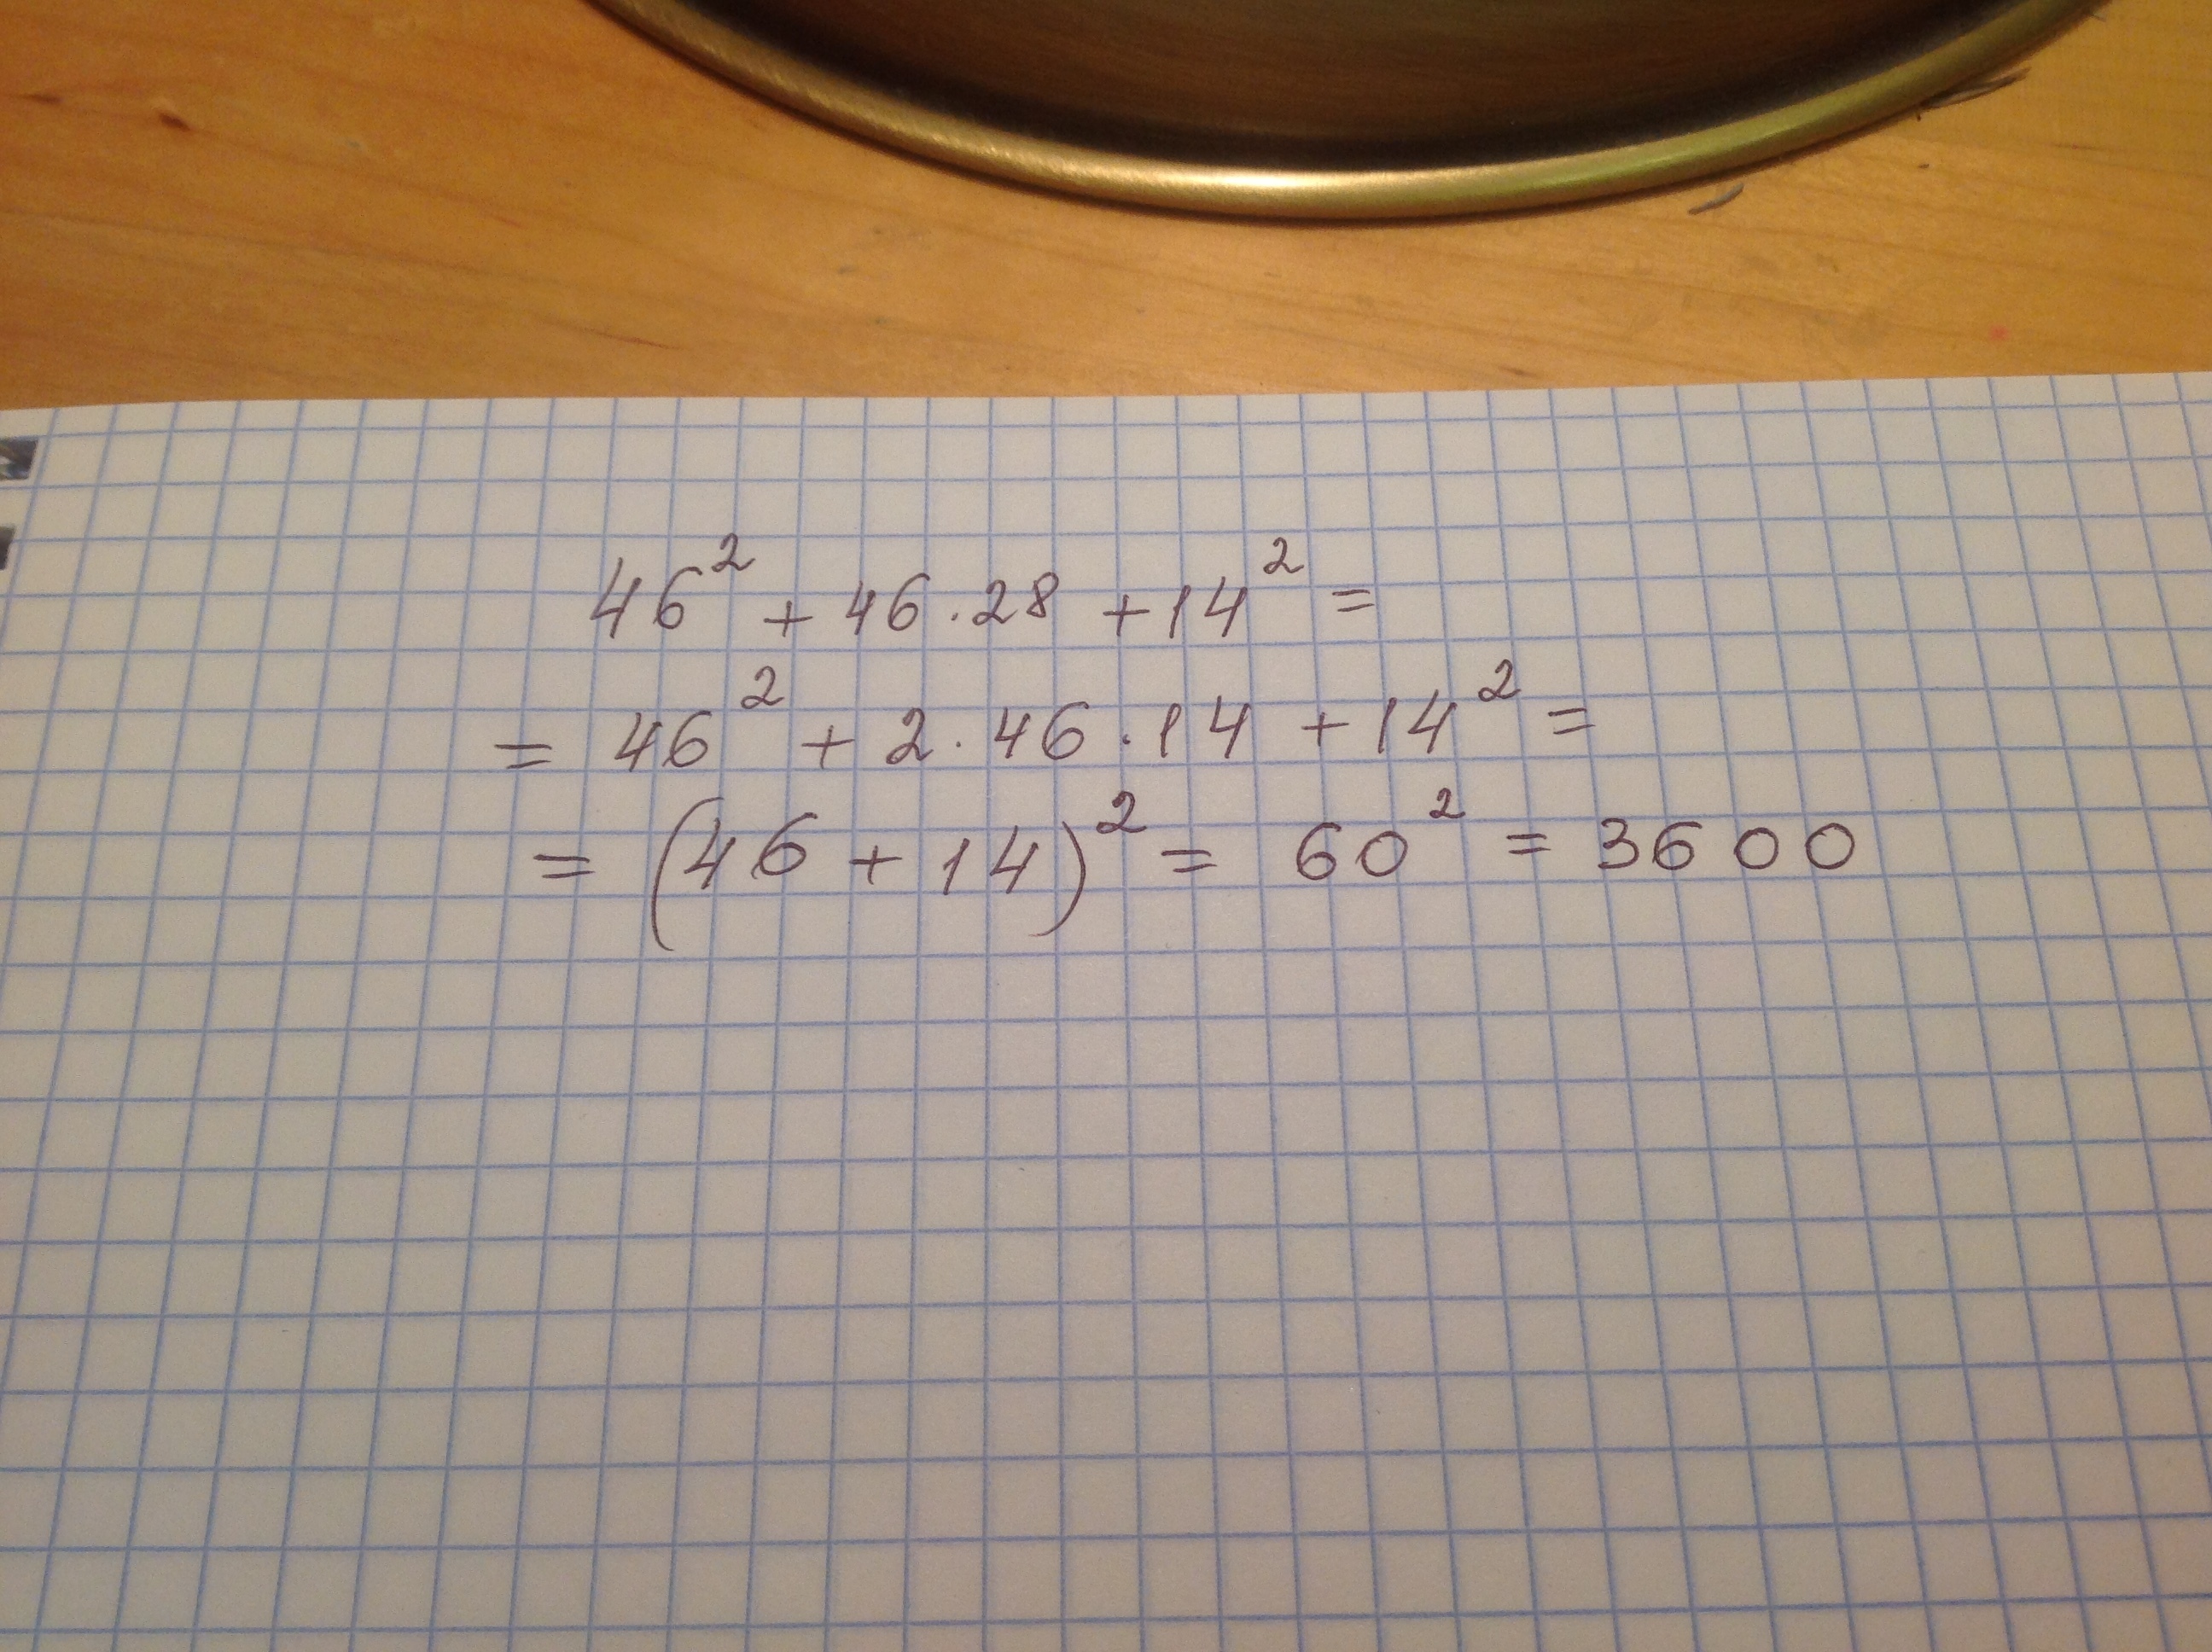 46² + 46 · 28 + 14² =
= 46² + 2 · 46 · 14 + 14² =
= (46 + 14)² = 60² = 3600